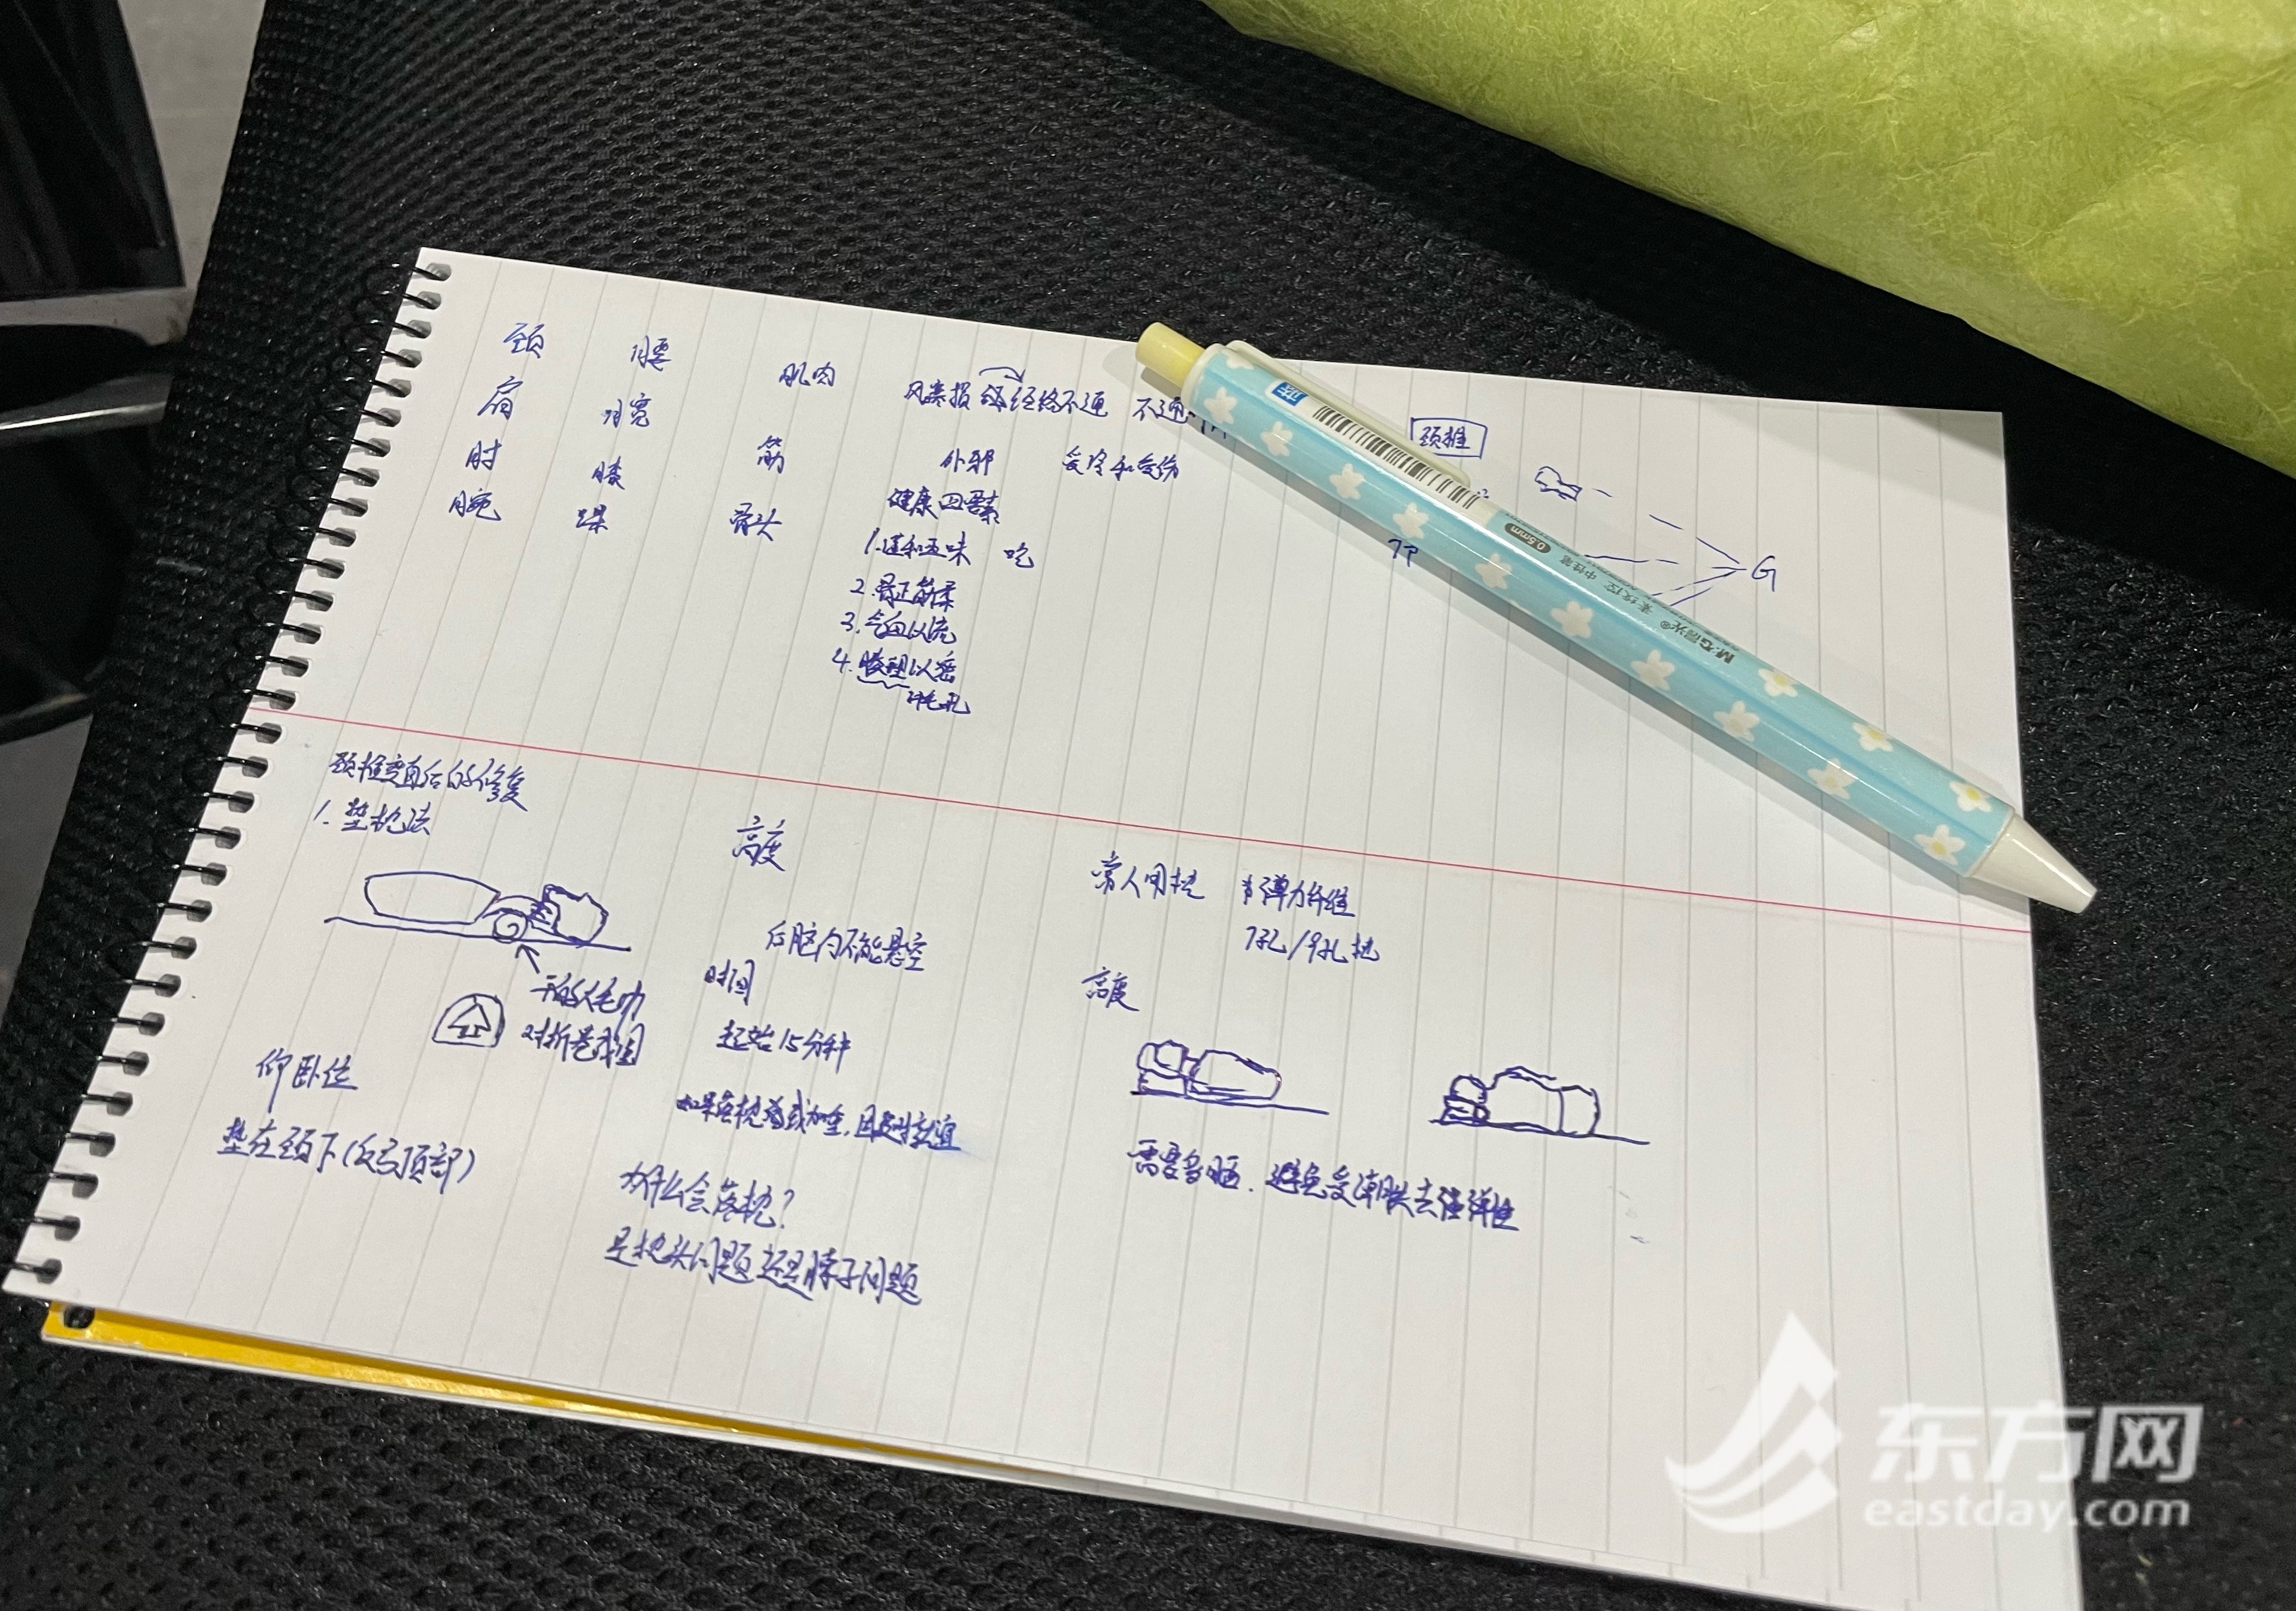 颈 腰 肌肉 风寒损伤 经络不通 不通
肩 髋
肘 膝 筋 外邪 受冷和受伤
腕 踝 骨头 健康四要素
1.谨和五味 吃
2.骨正筋柔
3.气血以流
4.腠理以密
毛孔
颈椎
G
颈椎变直后的修复
1.垫枕法
干的大毛巾
对折卷成圆
仰卧位
垫在颈下(后弓顶部)
高度
后脑勺不能悬空
时间
起始15分钟
为什么会落枕?
是枕头问题还是脖子问题
常人用枕 弹力纤维
7孔/9孔枕
高度
需要多晒.避免受潮失去弹性
M&G晨光®
中性笔
0.5mm
东方网
eastday.com